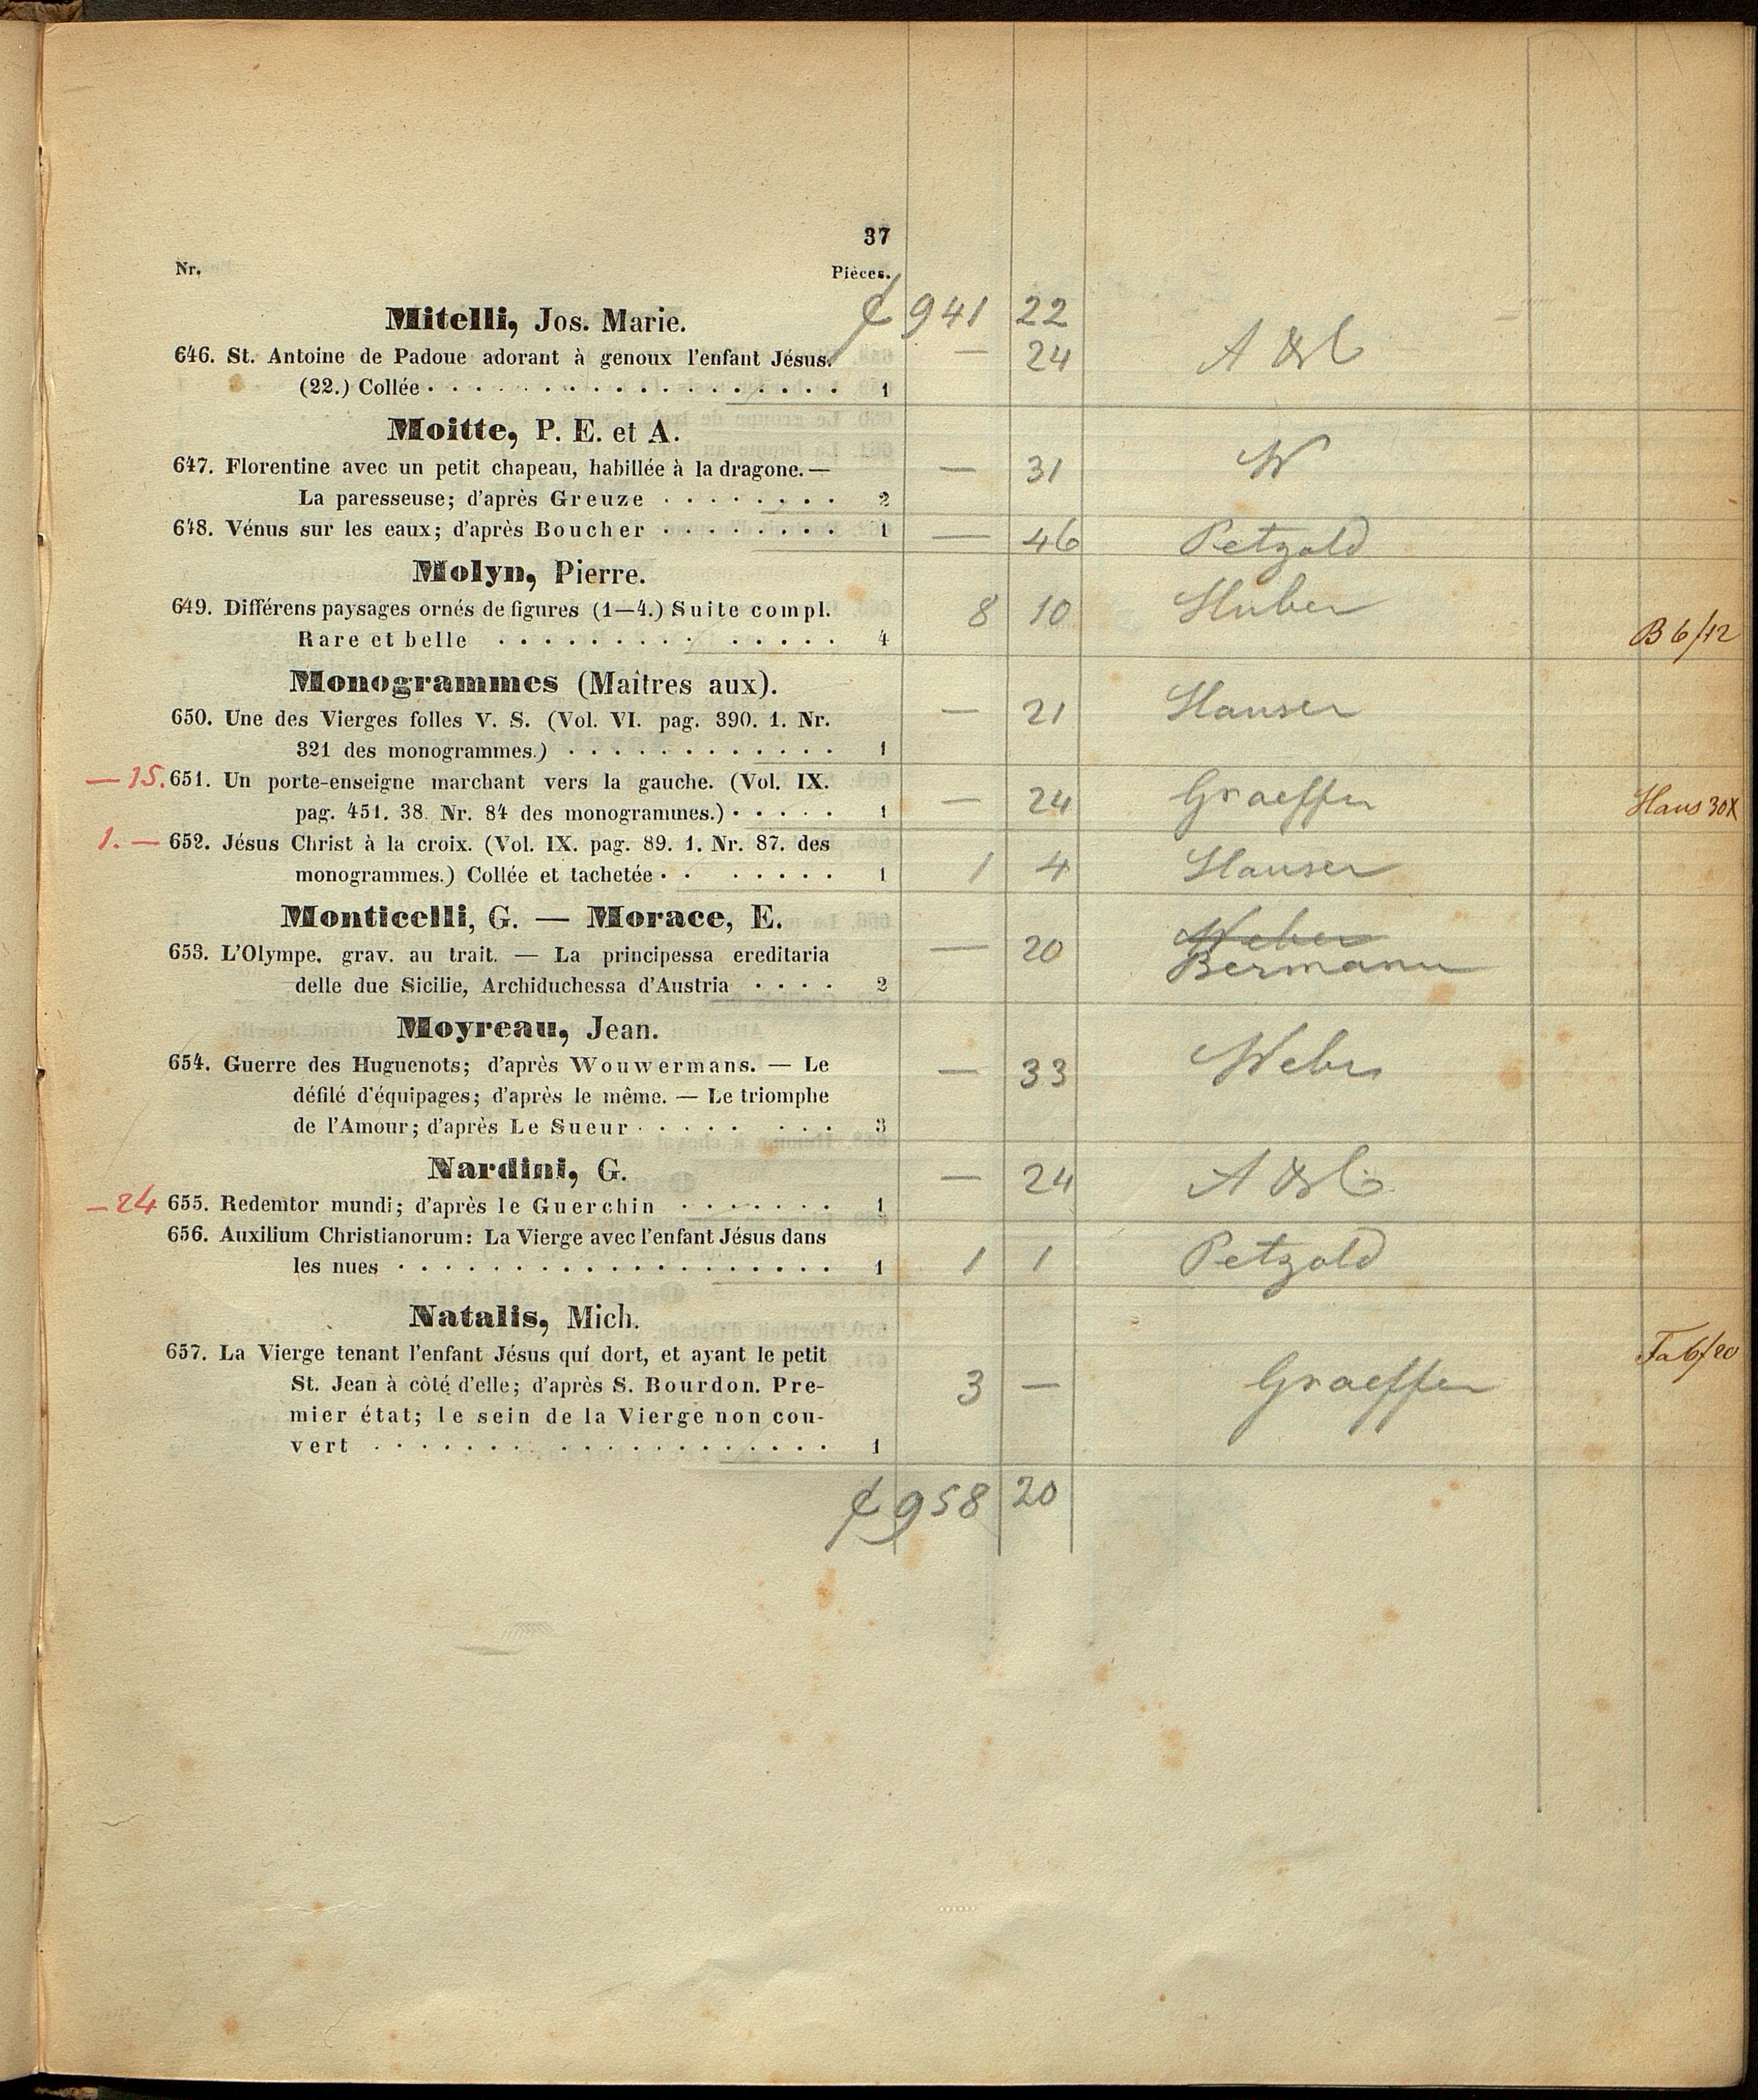 37
Nr. Pièces.
941 22
Mitelli, Jos. Marie.
646. St. Antoine de Padoue adorant à genoux l'enfant Jésus. — 24
(22.) Collée . . . . . . . . . . . . . . . . . . 1
Moitte, P. E. et A.
647. Florentine avec un petit chapeau, habillée à la dragone. — — 31 W
La paresseuse; d'après Greuze . . . . . . . . 2
648. Vénus sur les eaux; d'après Boucher . . . . . . . . 1 — 46 Petzold
Molyn, Pierre.
649. Différens paysages ornés de figures (1—4.) Suite compl. 8 10 Huber
Rare et belle . . . . . . . . . . . . . . 4 B 6/12
Monogrammes (Maîtres aux).
650. Une des Vierges folles V. S. (Vol. VI. pag. 390. 1. Nr. — 21 Hauser
321 des monogrammes.) . . . . . . . . . . . . 1
— 15. 651. Un porte-enseigne marchant vers la gauche. (Vol. IX. — 24 Graeffer
pag. 451. 38. Nr. 84 des monogrammes.) . . . . . 1 Haus 30x
1. — 652. Jésus Christ à la croix. (Vol. IX. pag. 89. 1. Nr. 87. des 1 4 Hauser
monogrammes.) Collée et tachetée . . . . . . . 1
Monticelli, G. — Morace, E.
653. L'Olympe, grav. au trait. — La principessa ereditaria — 20 Weber
Bermann
delle due Sicilie, Archiduchessa d'Austria . . . . 2
Moyreau, Jean.
654. Guerre des Huguenots; d'après Wouwermans. — Le — 33 Weber
défilé d'équipages; d'après le même. — Le triomphe
de l'Amour; d'après Le Sueur . . . . . . . . 3
Nardini, G.
— 24 655. Redemtor mundi; d'après le Guerchin . . . . . . . 1 — 24
656. Auxilium Christianorum: La Vierge avec l'enfant Jésus dans
les nues . . . . . . . . . . . . . . . . . . 1 1 1 Petzold
Natalis, Mich.
657. La Vierge tenant l'enfant Jésus qui dort, et ayant le petit
St. Jean à côté d'elle; d'après S. Bourdon. Pre- 3 — Graeffer
mier état; le sein de la Vierge non cou-
vert . . . . . . . . . . . . . . . . . . . 1
958 20